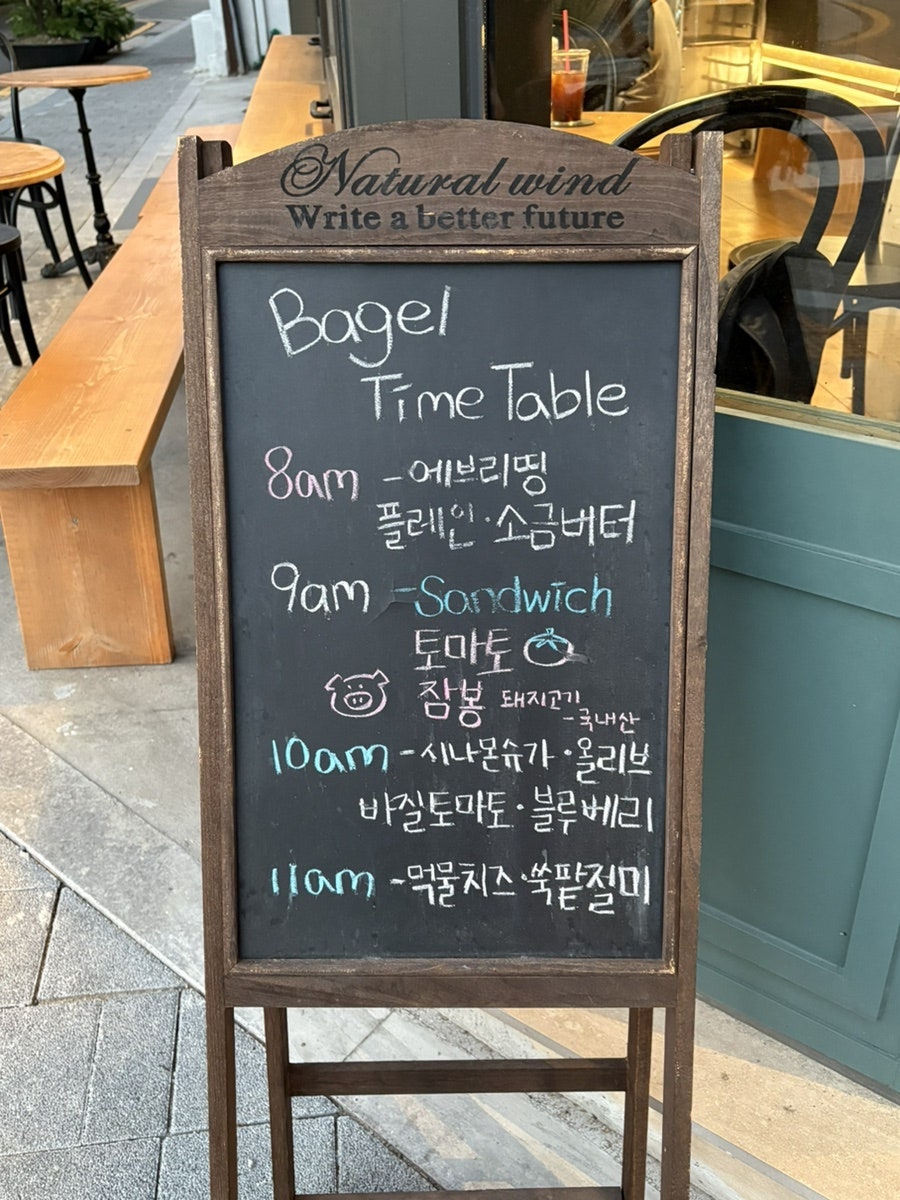 Natural wind
Write a better future
Bagel
Time Table
8am - 에브리띵
플레인 · 소금버터
9am - Sandwich
토마토
잠봉 돼지고기
- 국내산
10am - 시나몬슈가 · 올리브
바질토마토 · 블루베리
11am - 먹물치즈 · 쑥팥절미